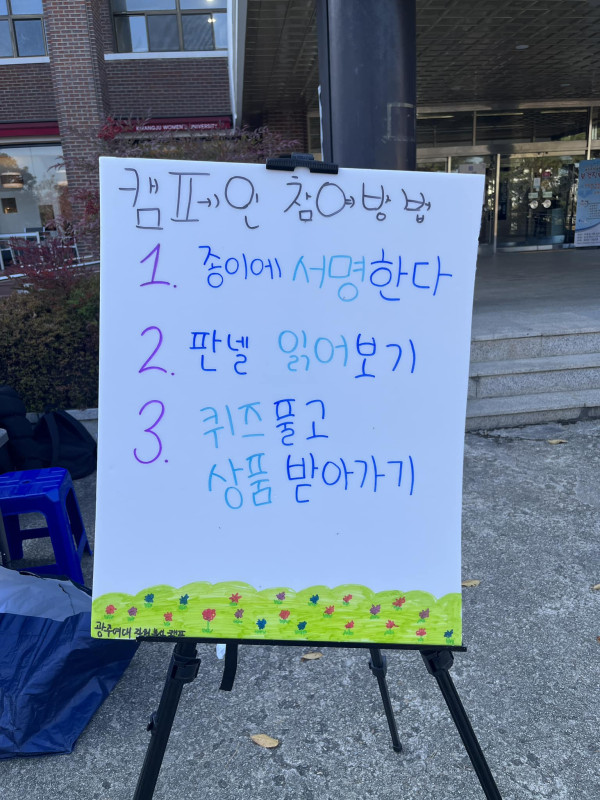 KWANGJU WOMEN'S UNIVERSITY
캠페인 참여방법
1. 종이에 서명한다
2. 판넬 읽어보기
3. 퀴즈 풀고
상품 받아가기
광주여대